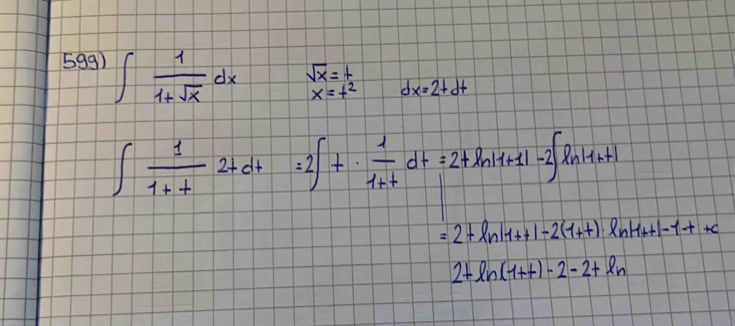 599) ∫ 1/(1+√x) dx √x = t
x = t² dx = 2t dt
∫ 1/(1+t) 2t dt = 2∫ t · 1/(1+t) dt = 2t ln|t+1| - 2∫ ln|1+t|
= 2t ln|1+t| - 2(1+t) · ln|1+t| - 1 - t + c
2t ln(1+t) - 2 - 2t ln